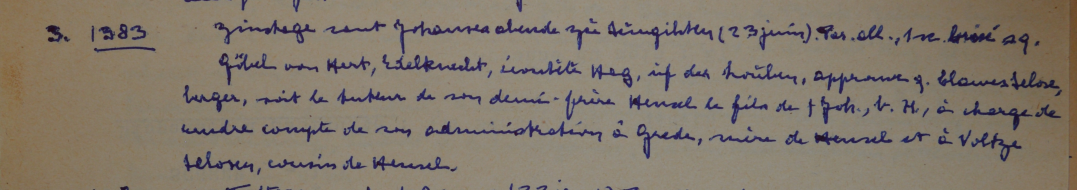 3. 1383 zinstage sant Johanses abende zü süngihten (23 juin). Par. all., 1 sc. brisé sq.
Göbel von Hert, Edelknecht, écoutète Hag, uf der houben, approuve q. Clawes Selose,
burger, soit le tuteur de son demi-frère Hensel le fils de † Joh., v. H., à charge de
rendre compte de son administration à Grede, mère de Hensel et à Voltze
Selosen, cousin de Hensel.